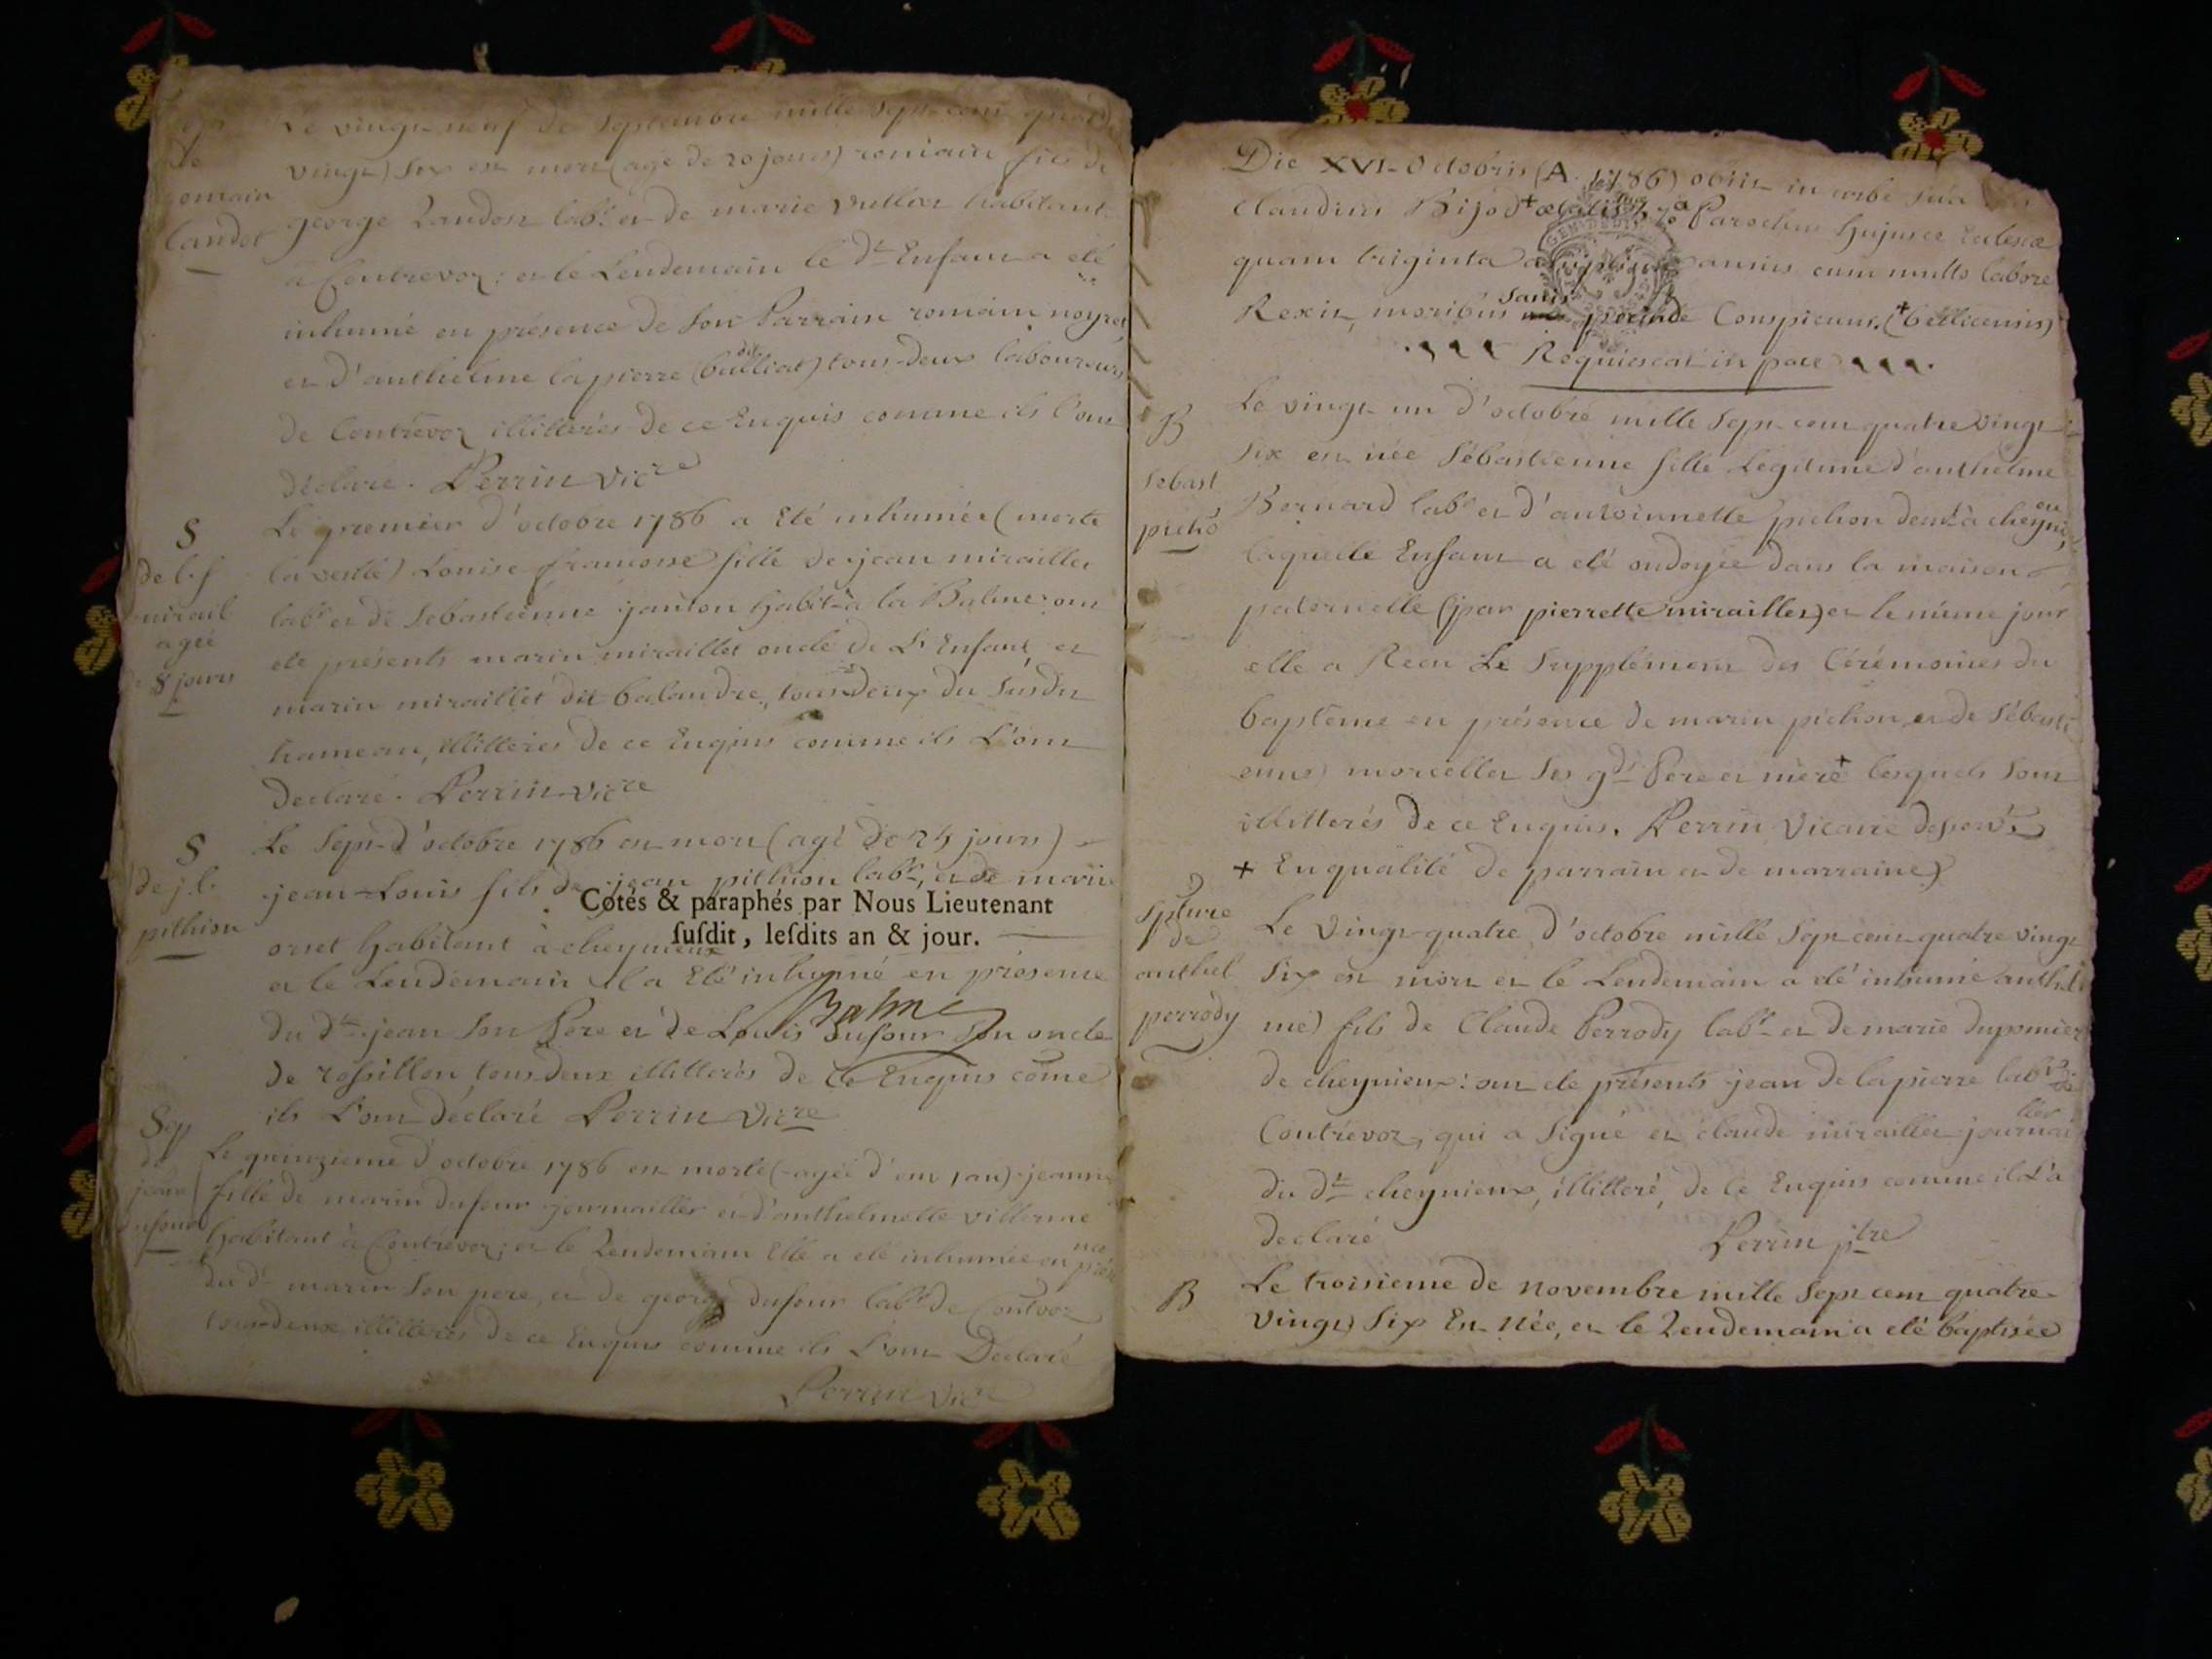 Le vingt neuf de Septembre mille Sept cent quatre
vingt Six est mort (agé de 20 jours) romain fils de
george Landoz labr et de marie vullier habitant
à Contrevoz ; et le Lendemain le dt Enfant a eté
inhumé en présence de Son Parrain romain noyret
et d'anthelme lapierre (dit bulliat) tous deux laboureurs
de Contrevoz illitterés de ce Enquis comme ils l'ont
declaré . Perrin vicre
romain
landot
S
de l.f
mirail
agée
8 jours
Le premier d'octobre 1786 a Eté inhumée (morte
la veille) Louise françoise fille de jean miraillet
labr et de Sebastienne janton habit à la Balme ont
eté présents marin miraillet oncle de L'Enfant et
marin miraillet dit balandre, tous deux du Susdit
hameau, illitterés de ce Enquis comme ils L'ont
Declaré . Perrin vicre
S
de j.l.
pithion
Le Sept d'octobre 1786 est mort (agé de 24 jours)
jean-Louis fils de jean pithion labr, et de marie
Cotés & paraphés par Nous Lieutenant
ſuſdit, leſdits an & jour.
orset habitant à cheynieux
et le Lendemain il a Eté inhumé en présence
Balme
du dt jean Son Pere et de Louis Dufour Son oncle
de rossillon tous deux illitterés de ce Enquis côme
ils L'ont déclaré Perrin vicre
Sep
de
jeane
dufour
Le quinzieme d'octobre 1786 est morte (agée d'un an) jeanne
fille de marin dufour journaillier et d'anthelmette villerme
habitant à Contrevoz ; et le Lendemain Elle a eté inhumée en présnce
du dt marin Son pere, et de george dufour labr de Contvoz
tous deux illitterés de ce Enquis comme ils L'ont Declaré
Perrin vicre
Die XVI Octobris (A. 1786) obiit in orbe Suâ
Claudius Bijod + ætatis Parochus hujusce Ecclesiæ
quam triginta annis cum multo labore
Rexit, moribus Sanis proinde Conspicuus. (+ bellicensis)
Requiescat in pace
B
Sebast
pichõ
Le vingt un d'octobre mille Sept cent quatre vingt
Six est née Sébastienne fille Légitime d'anthelme
Bernard labr et d'antoinnette pichon demt à cheynieu,
laquelle Enfant a eté ondoyée dans la maison
paternelle (par pierrette miraillet) et le même jour
elle a Recu Le Supplément des Cérémonies du
baptême en présence de marin pichon et de Sébasti
enne morcellet Ses gds Pere et mere + lesquels Sont
illitterés de ce Enquis. Perrin Vicaire desservt
+ En qualité de parrain et de marraine
Spture
de
anthel
perrody
Le vingt-quatre d'octobre mille Sept cent quatre vingt
Six est mort et le Lendemain a eté inhumé anthel
me fils de Claude Perrody labr et de marie dupomier
de cheynieux : ont eté présents jean de lapierre labr de
Contrevoz, qui a Signé et claude miraillet journaillier
du dt cheynieux, illitteré, de ce Enquis comme il L'a
declaré
Perrin ptre
B
Le troisieme de novembre mille Sept cent quatre
vingt Six Est Née, et le Lendemain a eté baptisée